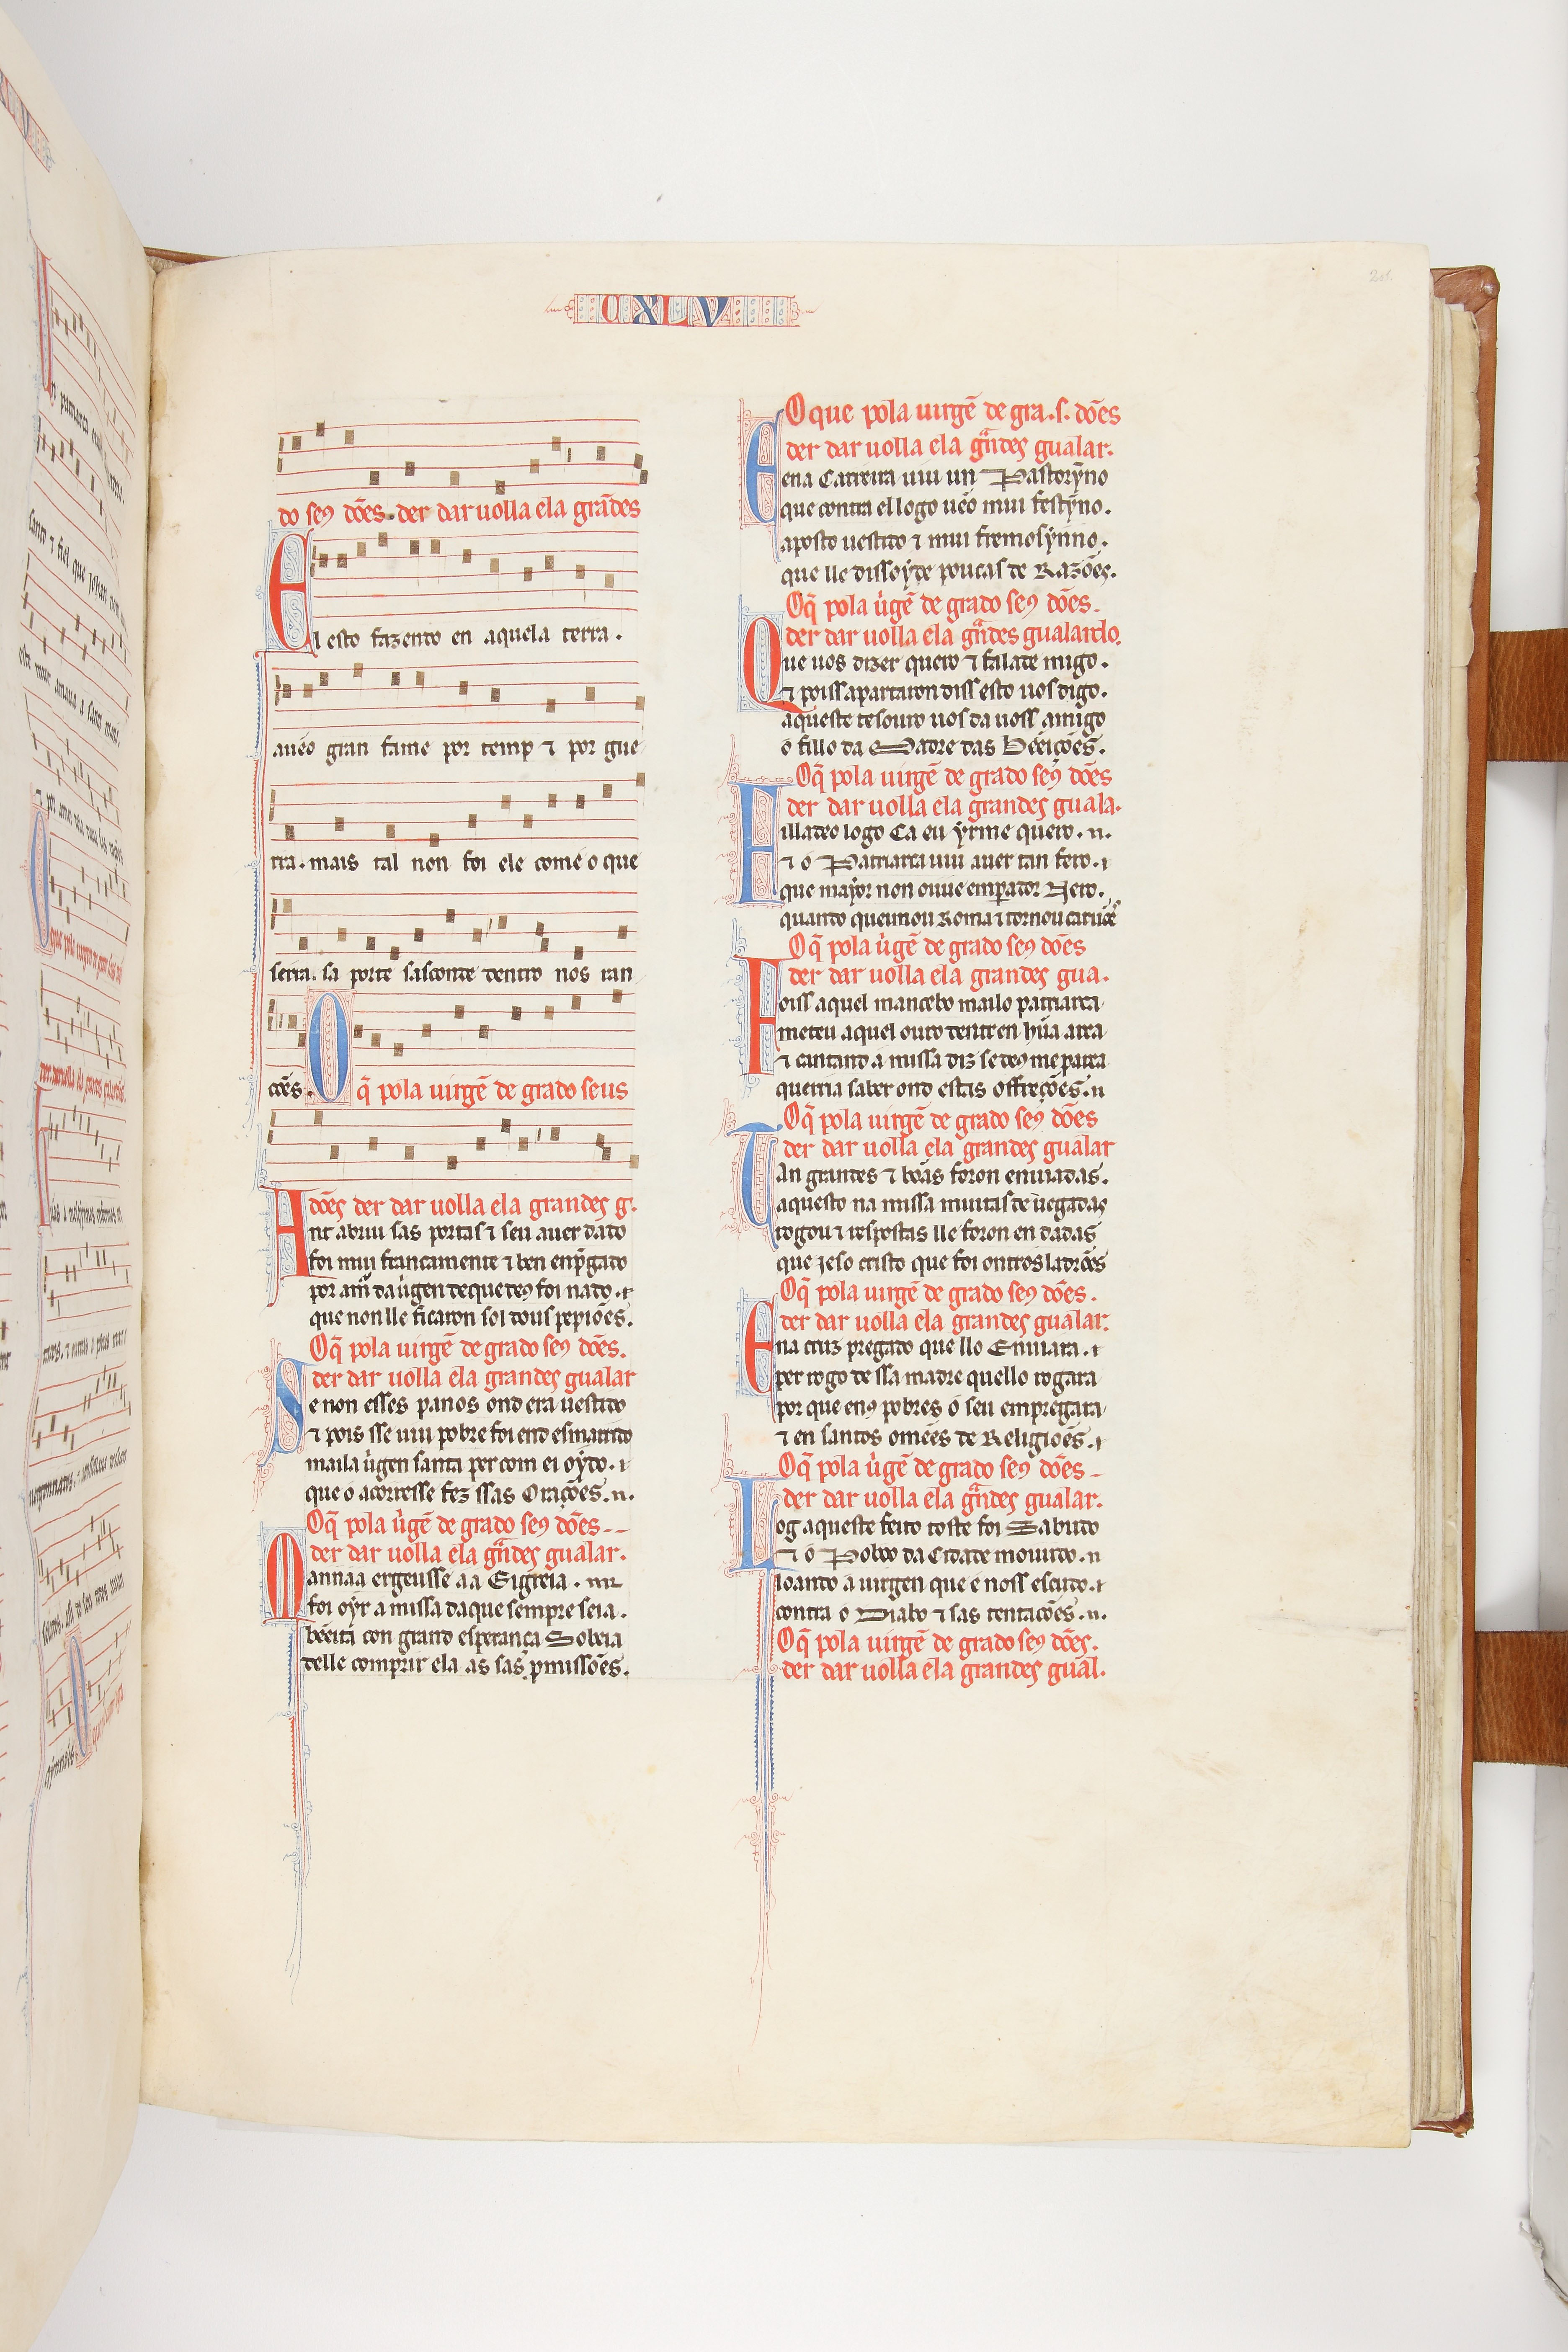 CXLV
201.
do seꝰ dões. der dar uolla ela grãdes
El esto fazendo en aquela terra.
auẽo gran fame por temp ⁊ por gue
rra. mais tal non foi ele comẽ o que
serra. sa porte sasconde dentro nos ran
cões. O q̃ pola uirgẽ de grado seus
dões der dar uolla ela grandes g.
Ant abriu sas portas ⁊ seu auer dado
foi mui francamente ⁊ ben enp̃gado
que non lle ficaron sol dous pepiões.
Oq̃ pola uirgẽ de grado seꝰ dões.
der dar uolla ela grandes gualar
Se non esses panos ond era uestido
⁊ pois sse uiu pobre foi end esmarrido
maila uˀgen santa per com ei oydo. ⁊
que o acorresse fez ssas Orações. n.
Oq̃ pola uˀgẽ de grado seꝰ dões--
der dar uolla ela gñdes gualar.
Mannaa ergeusse aa Eigreia.
foi oyr a missa daque sempre seia.
bẽeita con grand esperança Sobeia
delle comprir ela as sas p̃missões.
O que pola uirgẽ de gra. s. dões
der dar uolla ela gñdes gualar.
Ena Carreira uiu un Pastorỹno
que contra el logo uẽo mui festỹno.
aposto uestido ⁊ mui fremosỹnno.
que lle diss oyde poucas de Razões.
Oq̃ pola uˀgẽ de grado seꝰ dões.
der dar uolla ela gñdes gualardo.
Que uos dizer quero ⁊ falade migo.
⁊ poiss apartaron diss esto uos digo.
aqueste tesouro uos da uoss amigo
o fillo da Madre das Bẽeições.
Oq̃ pola uirgẽ de grado seꝰ dões
der dar uolla ela grandes guala.
Fillade o logo Ca eu yrme quero. n.
⁊ o Patriarca uiu auer tan fero. ⁊
que mayor non ouue emperador Nero.
Oq̃ pola uˀgẽ de grado seꝰ dões
der dar uolla ela grandes gua.
Foiss aquel mancebo mailo patriarca
meteu aquel ouro dentr en hũa arca
⁊ cantand a missa diz se deꝰ me parca
querria saber ond estas offreções. n
Oq̃ pola uirgẽ de grado seꝰ dões
der dar uolla ela grandes gualar
Tan grandes ⁊ bõas foron enuiadas.
aquesto na missa muitas de uegadas
rogou ⁊ respostas lle foron en dadas
que jeso cristo que foi ontros ladrões
Oq̃ pola uirgẽ de grado seꝰ dões.
der dar uolla ela grandes gualar.
Ena cruz pregado que llo Enuiara. ⁊
per rogo de ssa madre quello rogara
por que enꝰ pobres o seu empregara
⁊ en santos omẽes de Religiões. ⁊
Oq̃ pola uˀgẽ de grado seꝰ dões-
der dar uolla ela gñdes gualar.
Log aqueste feito toste foi Sabudo
⁊ o Poboo da Cidade mouudo. n
loando a uirgen que e noss escudo. ⁊
contra o Diabo ⁊ sas tentações. n.
Oq̃ pola uirgẽ de grado seꝰ dões.
der dar uolla ela grandes gual.